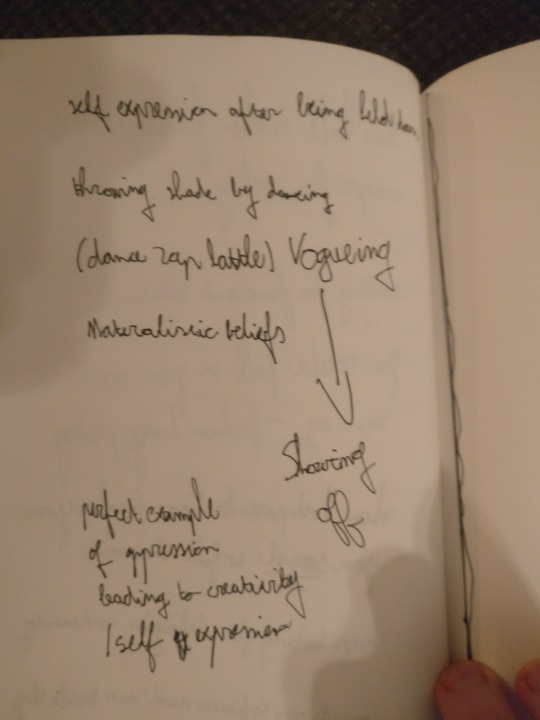 self expression after being held down
throwing shade by dancing
(dance rap battle) Vogueing
Materialistic beliefs
Showing
off
perfect example
of oppression
leading to creativity
/self expression